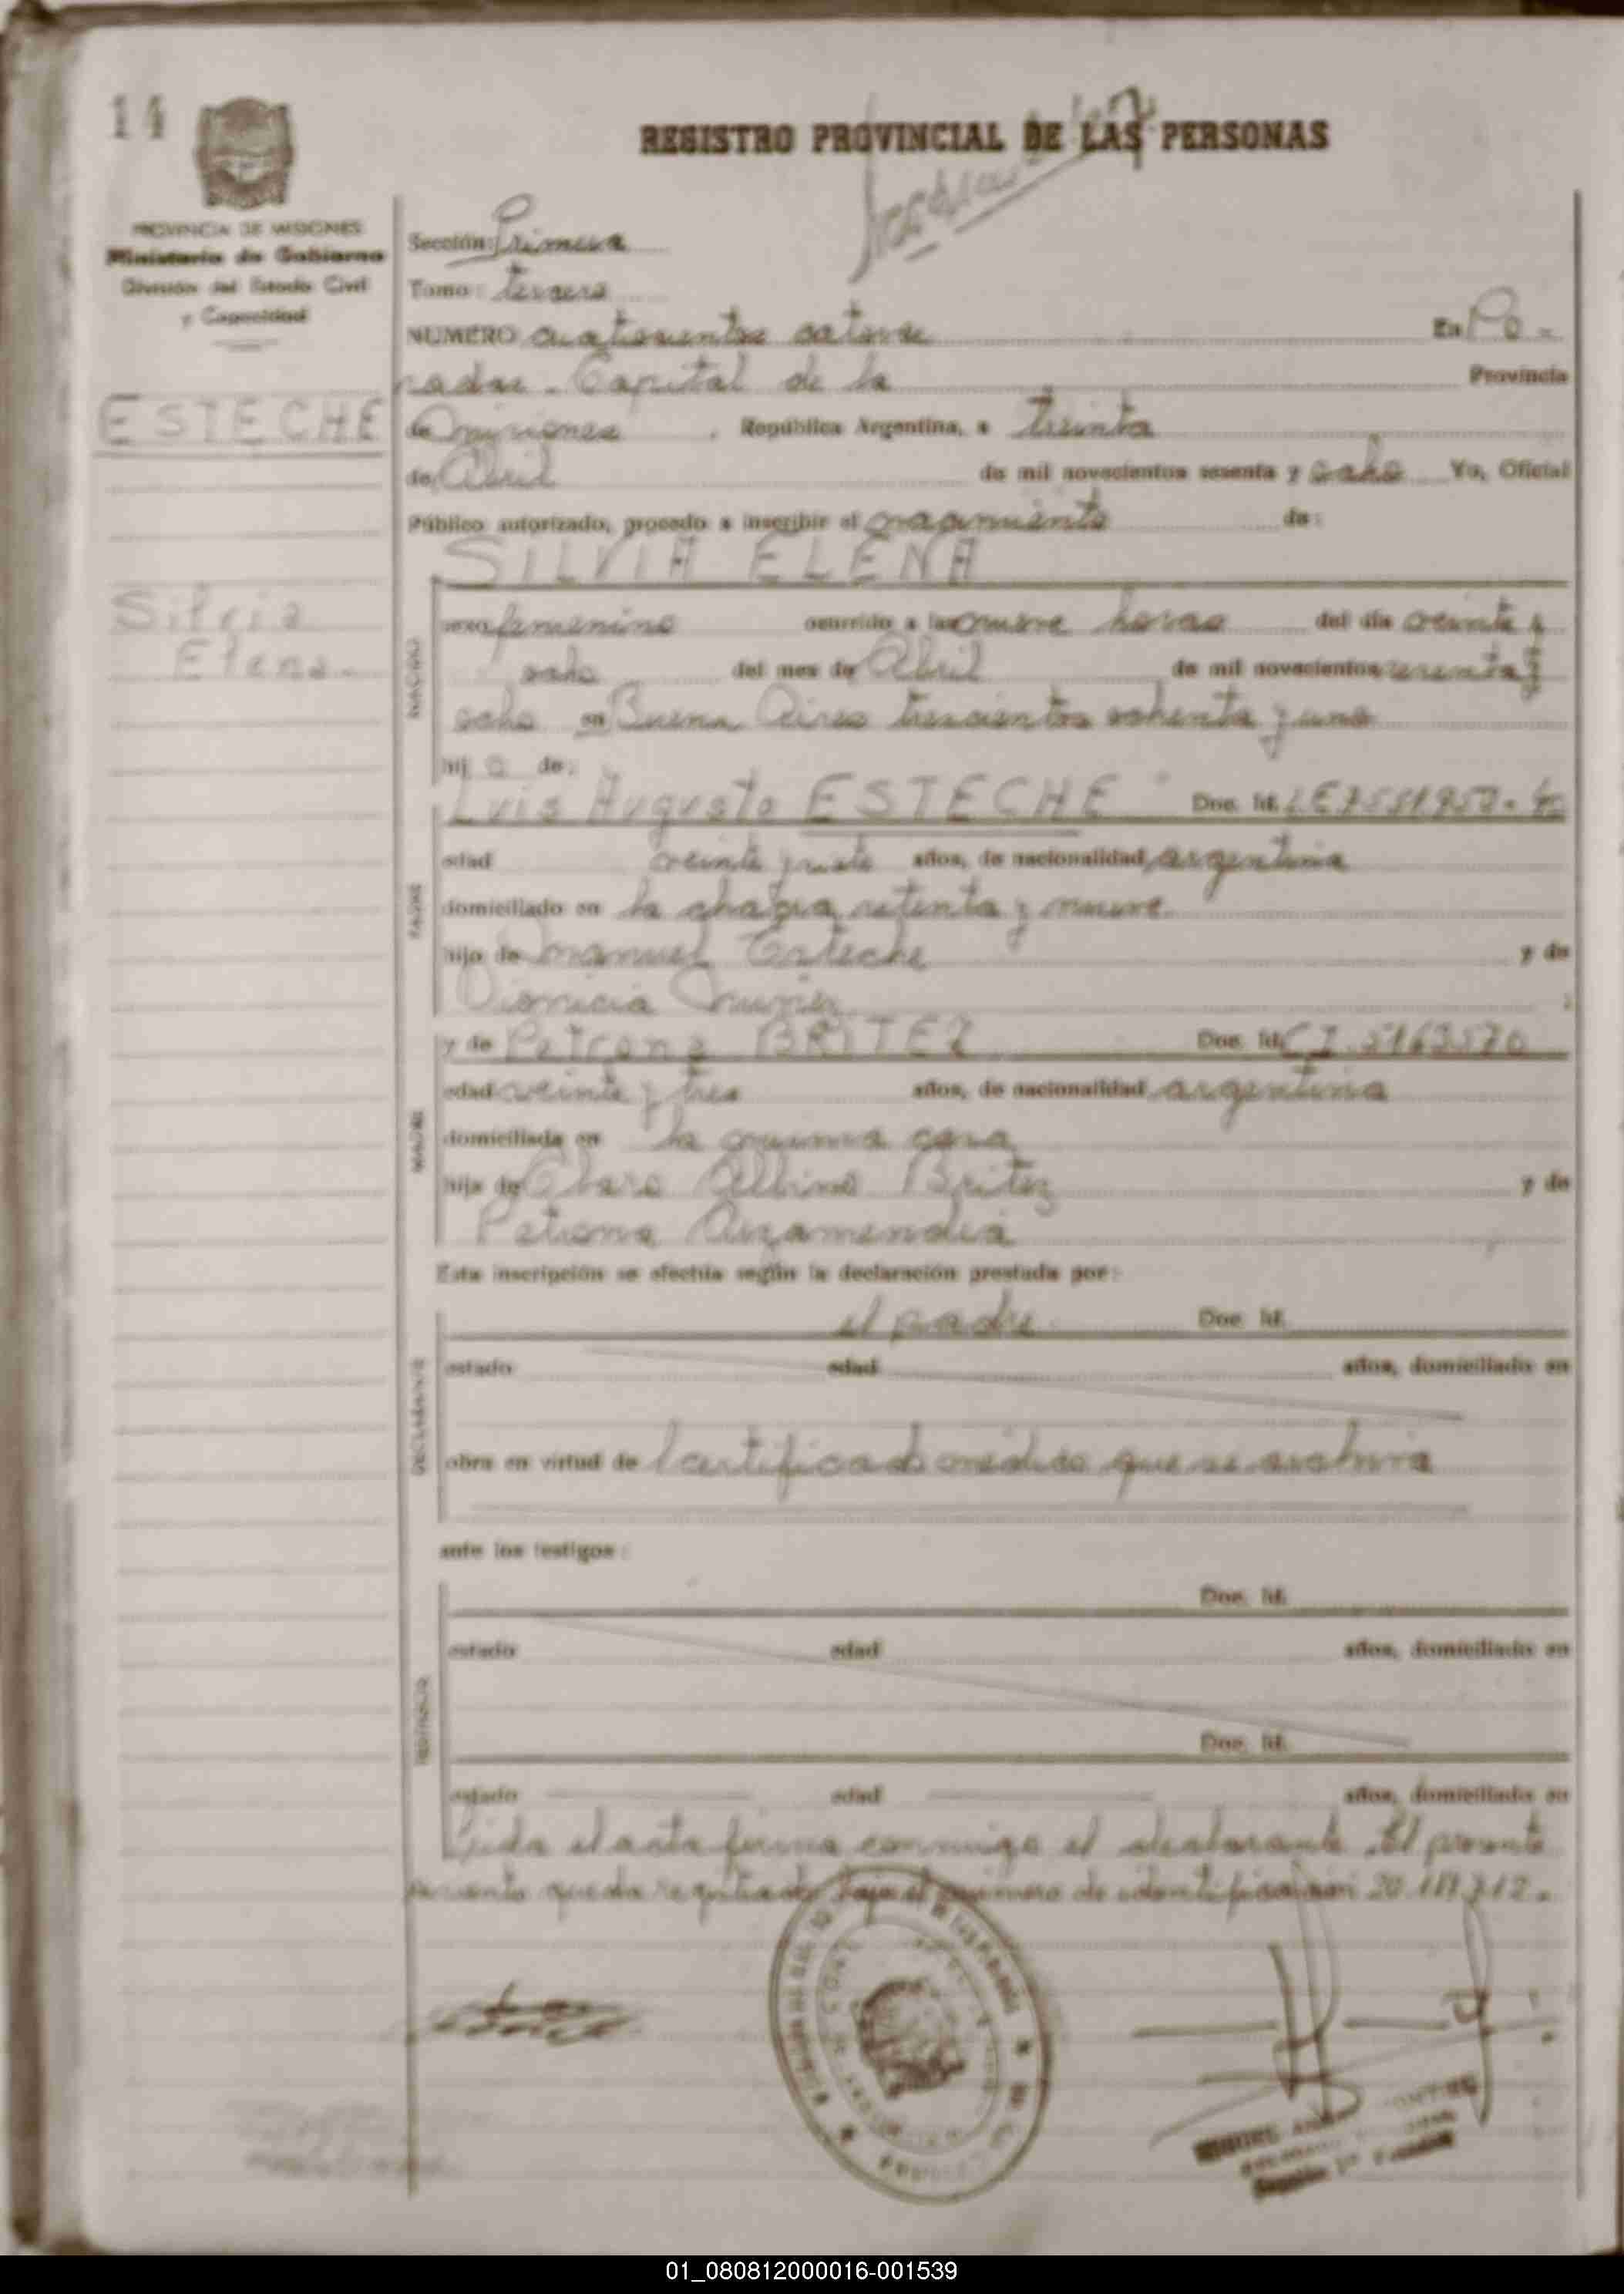 14
REGISTRO PROVINCIAL DE LAS PERSONAS
PROVINCIA DE MISIONES
Ministerio de Gobierno
División del Estado Civil
y Capacidad
Sección: Primera
Tomo: tercero
NUMERO cuatrocientos catorce En Po-
sadas - Capital de la Provincia
ESTECHE
de Misiones, República Argentina, a treinta
de Abril de mil novecientos sesenta y ocho Yo, Oficial
Público autorizado, procedo a inscribir el nacimiento de:
SILVIA ELENA
Silvia
Elena.-
NACIDO
sexo femenino ocurrido a las nueve horas del día veinte y
ocho del mes de Abril de mil novecientos sesenta y
ocho en Buenos Aires trescientos ochenta y uno
hij a de:
PADRE
Luis Augusto ESTECHE Doc. Id. LE
edad veinte y siete años, de nacionalidad argentina
domiciliado en la chacra setenta y nueve
hijo de Manuel Esteche y de
Dionicia
MADRE
y de Petrona BRITEZ Doc. Id. CI 5163570
edad veinte y tres años, de nacionalidad argentina
domiciliada en la misma casa
hija de Albino Britez y de
Petrona Arzamendia
Esta inscripción se efectúa según la declaración prestada por:
DECLARANTE
el padre Doc. Id.
estado edad años, domiciliado en
obra en virtud de certificado médico que se archiva
ante los testigos:
TESTIGOS
Doc. Id.
estado edad años, domiciliado en
Doc. Id.
estado edad años, domiciliado en
Leída el acta firma conmigo el declarante. El presente
asiento queda registrado bajo el número de identificación
01_080812000016-001539